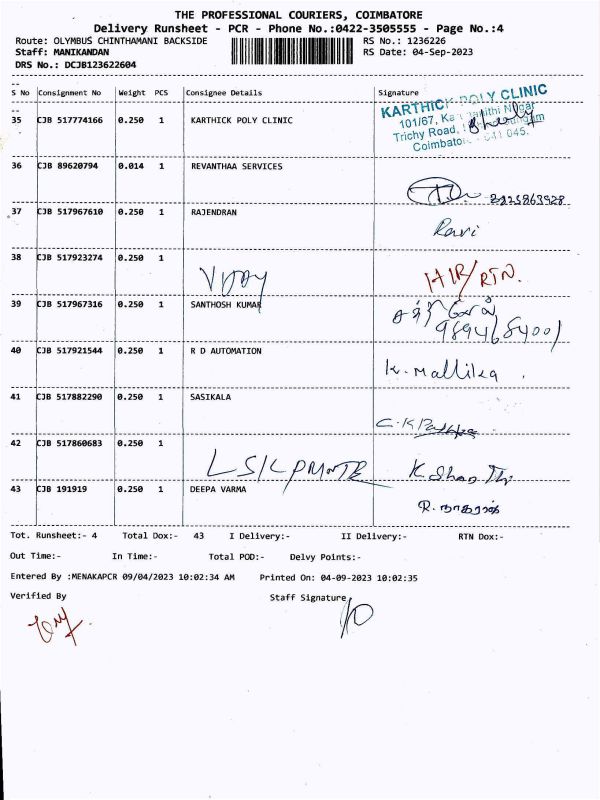 THE PROFESSIONAL COURIERS, COIMBATORE
Delivery Runsheet - PCR - Phone No.:0422-3505555 - Page No.:4
Route: OLYMBUS CHINTHAMANI BACKSIDE RS No.: 1236226
Staff: MANIKANDAN RS Date: 04-Sep-2023
DRS No.: DCJB123622604
S No Consignment No Weight PCS Consignee Details Signature
35 CJB 517774166 0.250 1 KARTHICK POLY CLINIC
KARTHICK POLY CLINIC
101/67,
Trichy Road,
Coimbatore - 641 045.
36 CJB 89620794 0.014 1 REVANTHAA SERVICES
37 CJB 517967610 0.250 1 RAJENDRAN
Ravi
38 CJB 517923274 0.250 1
VIJAY
39 CJB 517967316 0.250 1 SANTHOSH KUMAR
9894684001
40 CJB 517921544 0.250 1 R D AUTOMATION
K. Mallika
41 CJB 517882290 0.250 1 SASIKALA
42 CJB 517860683 0.250 1
43 CJB 191919 0.250 1 DEEPA VARMA
Tot. Runsheet:- 4 Total Dox:- 43 I Delivery:- II Delivery:- RTN Dox:-
Out Time:- In Time:- Total POD:- Delvy Points:-
Entered By :MENAKAPCR 09/04/2023 10:02:34 AM Printed On: 04-09-2023 10:02:35
Verified By Staff Signature